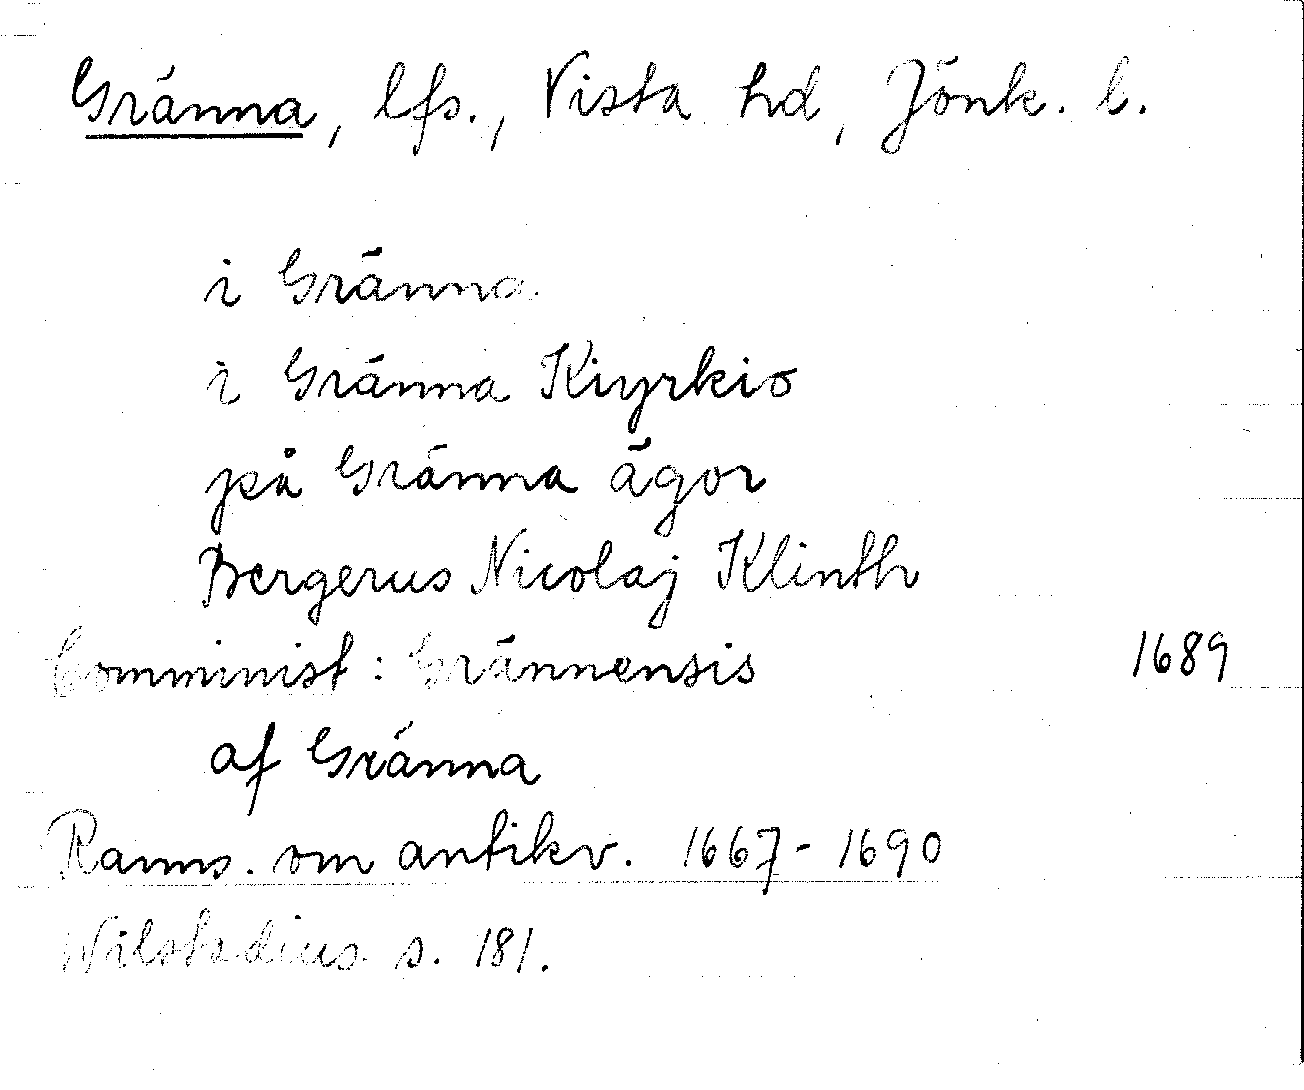 Gränna, lfs., Vista hd, Jönk. l.
i Gränna
i Gränna Kiyrkio
på Gränna ägor
Bergerus Nicolaj Klinth
Comminist: Grännensis 1689
af Gränna
Ranns. om antikv. 1667-1690
Wilstadius s. 181.